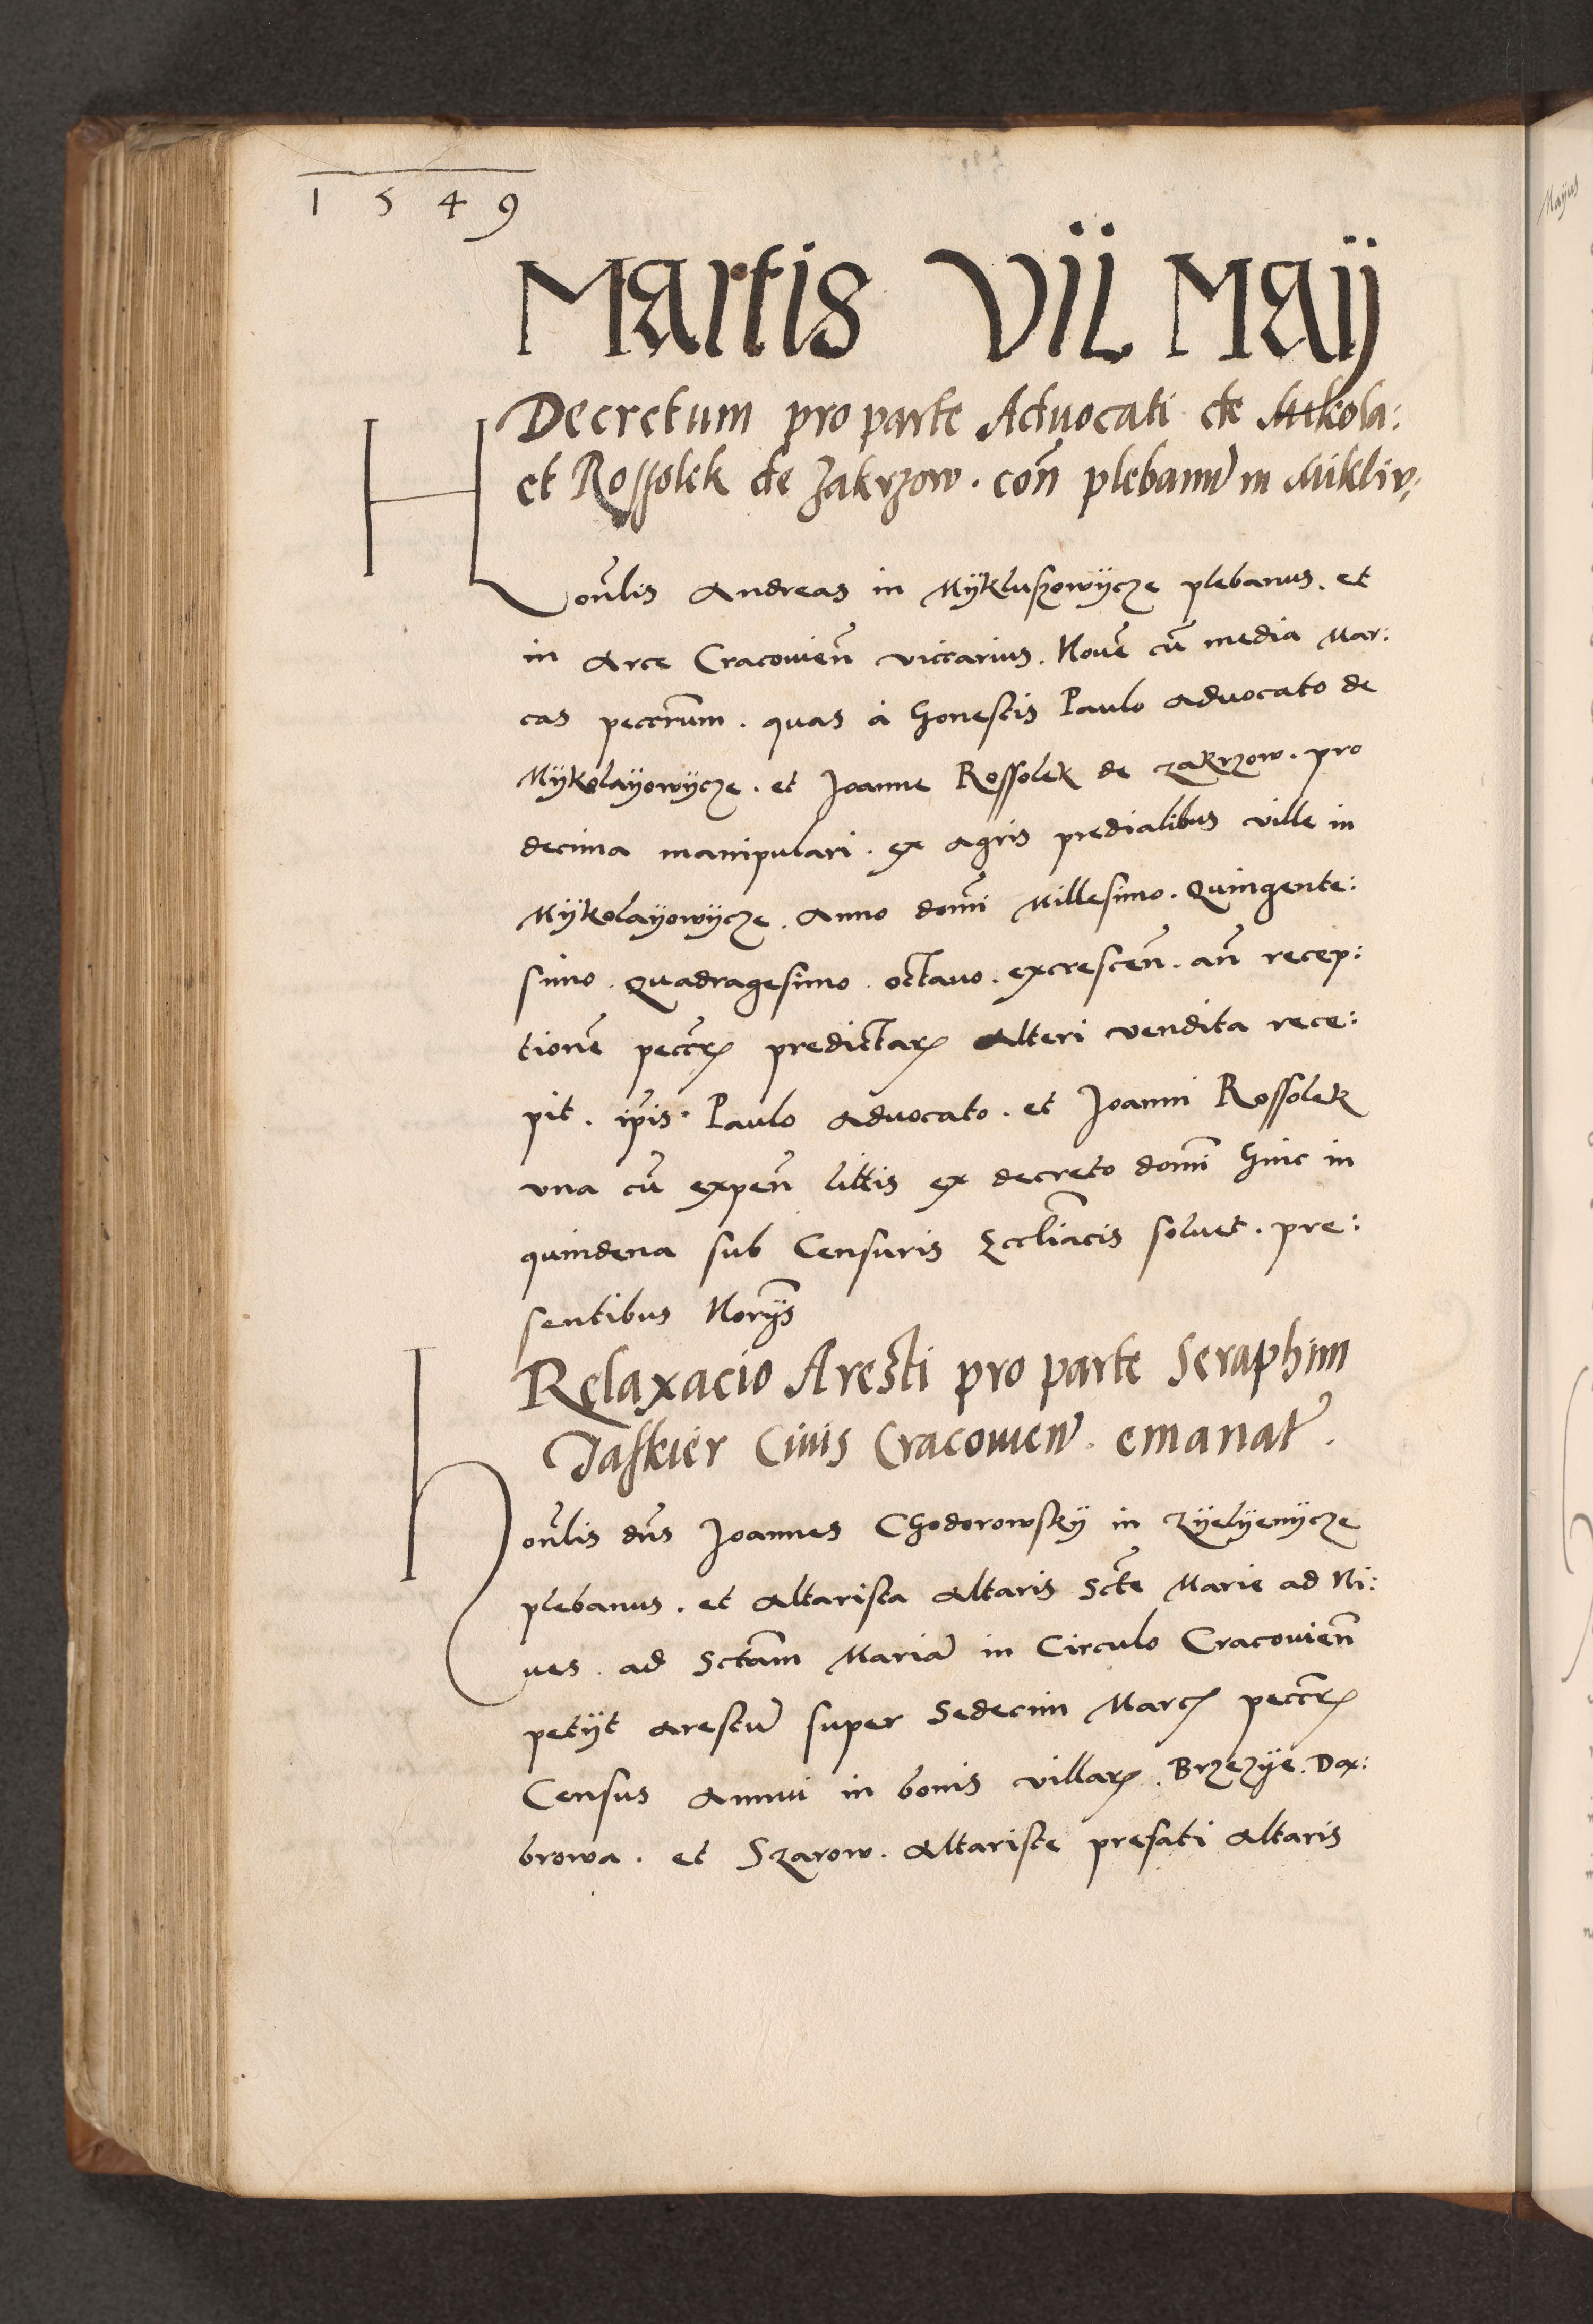 1549
Martis VII Maij
Decretum pro parte Advocati de Mikola:
et Rossolek de Zakrzow. con̄ plebanu͂ in Mikluv:
Hon͂lis Andreas in Mÿkluszowÿcze plebanus. et
in Arce Cracovien͂ viccarius. Nove͂ cu͂ media Mar:
cas peccun͂rum. quas à Honestis Paulo Advocato de
Mÿkolaÿowÿcze. et Joanne Rossolek de Zakrzow. pro
decima manipulari. ex agris predialibus ville in
Mÿkolaÿowÿcze. Anno dom͂i Millesimo. Quingente:
simo. Quadragesimo. octavo. excrescen͂. an͂ recep:
tione͂ pecc͂rꝝ predictarꝝ Alteri vendita rece:
pit. ip͂is. Paulo Advocato. et Joanni Rossolek
vna cu͂ expen͂ litis ex decreto dom͂i Hinc in
quindena sub Censuris Eccl͂iacis solvet. pre:
sentibus Nor͂ÿs
Relaxacio Aresti pro parte Seraphim
Jaskier Civis Cracovien͂. emanat͂.
Hon͂lis dn͂s Joannes Chodorowskÿ in Zÿelÿenÿcze
plebanus. et Altarista Altaris Sct͂e Marie ad Ni:
ves. ad Sct͂am Maria͂ in Circulo Cracovien͂
petÿt arestu͂ super Sedecim Marcꝝ pecc͂rꝝ
Census Annui in bonis villarꝝ. Brzezÿe. Dax:
browa. et Szarow. Altariste prefati Altaris
Maÿus